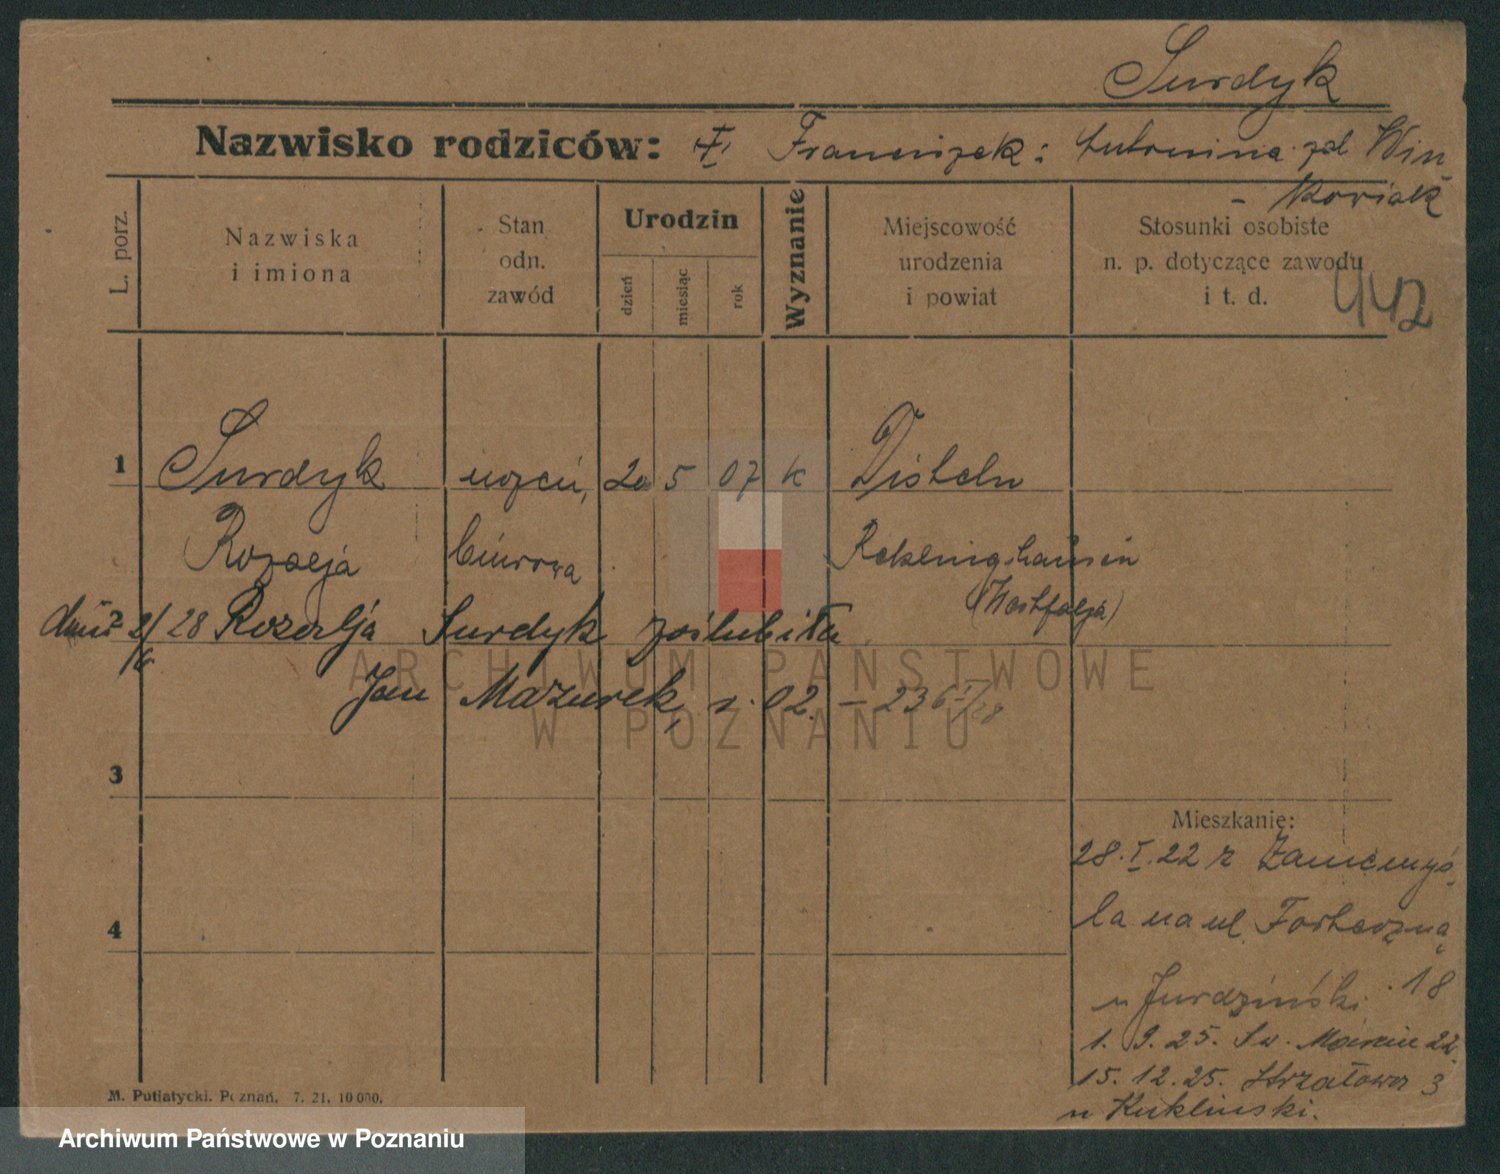 Surdyk
Nazwisko rodziców: Franciszek: Antonina zd Win-
- kowiak
L. porz.
Nazwiska
i imiona
Stan
odn.
zawód
Urodzin
dzień
miesiąc
rok
Wyznanie
Miejscowość
urodzenia
i powiat
Stosunki osobiste
n. p. dotyczące zawodu
i t. d.
442
1 Surdyk uczeń, 20 5 07 k Disteln
Rozalja biurowa
(Westfalja)
2
dnia 2/6 28 Rozalja Surdyk zaślubiła
Jan Mazurek, r. 02. - 236
3
4
Mieszkanie:
28.I.22 r Zamieszka-
ła na ul. Forteczna
18
u
1. 9. 25. Św. Marcin 22.
15. 12. 25. Strzałowa 3
u Kuklinski.
M. Putiatycki. Poznań. 7. 21. 10 000.
ARCHIWUM PAŃSTWOWE
W POZNANIU
Archiwum Państwowe w Poznaniu